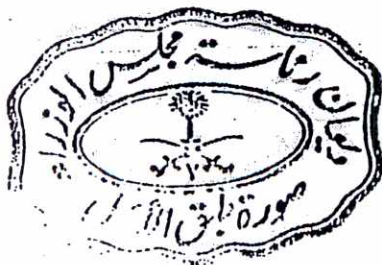 ديوان رئاسة مجلس الوزراء
صورة طبق الأصل